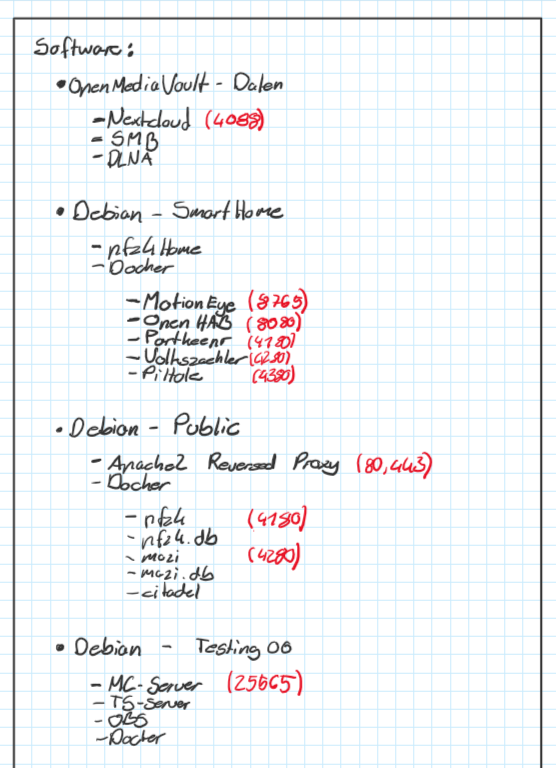 Software:
• OpenMediaVault - Daten
- Nextcloud (4088)
- SMB
- DLNA
• Debian - SmartHome
- nfz4Home
- Docker
- MotionEye (8765)
- OpenHAB (8080)
- Portkeenr (4180)
- Volkszaehler (4280)
- PiHole (4380)
• Debian - Public
- Apache2 Reversed Proxy (80,443)
- Docker
- nfz4 (4180)
- nfz4.db
- mczi (4280)
- mczi.db
- citadel
• Debian - Testing
- MC-Server (25565)
- TS-Server
- OBS
- Docker